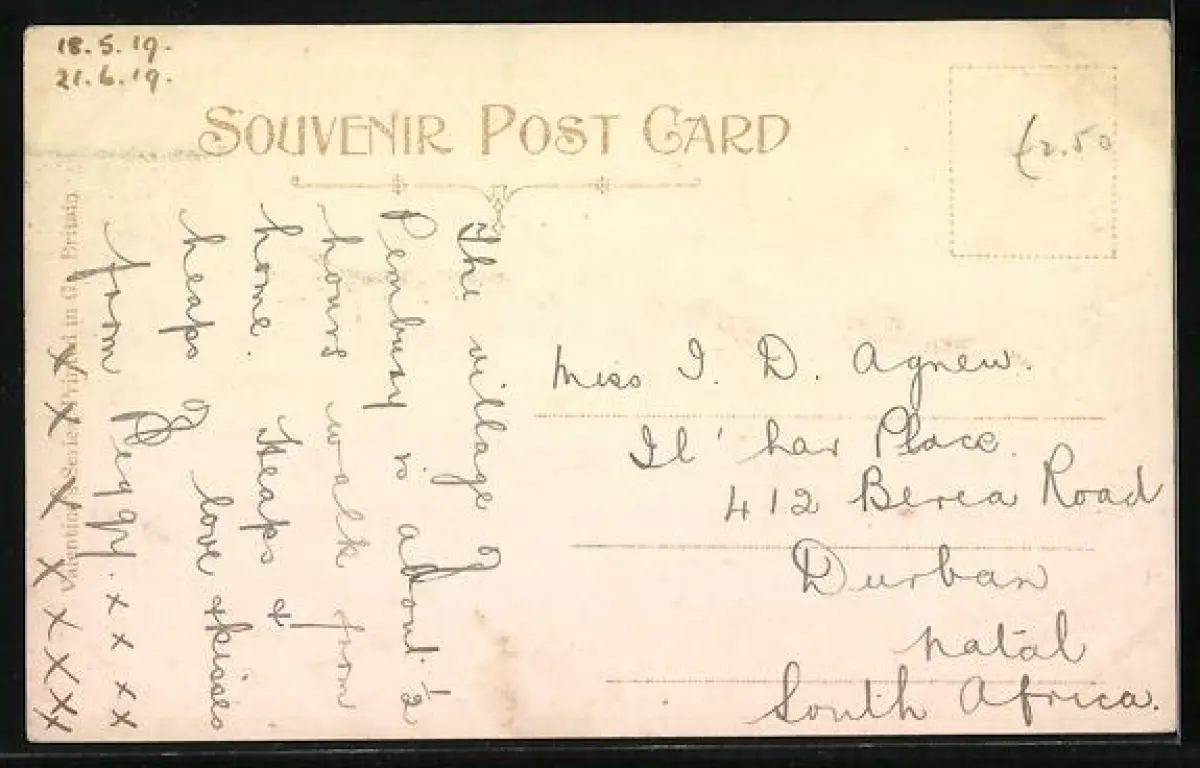 18.5.19.
21.6.19.
SOUVENIR POST CARD
£2.50
The village of
Pembury is about 1/2
hours walk from
home. Heaps &
heaps of love & kisses
from Peggy. x x x x
x x x x x x x x
Miss I. D. Agnew.
Il' har Place.
412 Berea Road
Durban
Natal
South Africa.
Valentine's Series Printed in Gt Britain